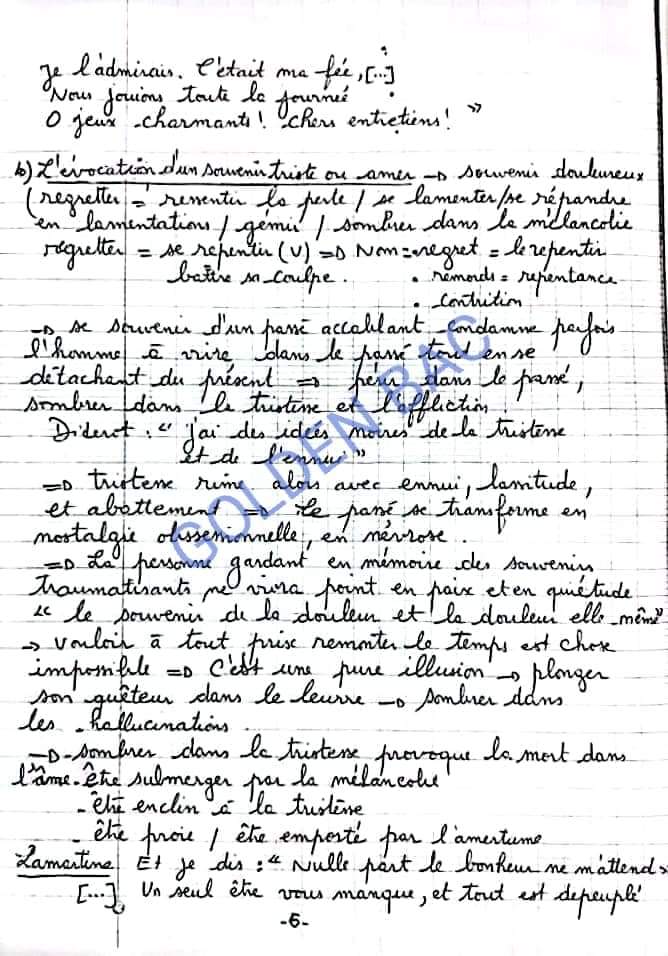 Je l'admirais. C'était ma fée, [...]
Nous jouions toute la journée
O jeux charmants! chers entretiens! »
b) L'évocation d'un souvenir triste ou amer → souvenir douloureux
(regretter = ressentir la perte / se lamenter / se répandre
en lamentations / gémir / sombrer dans la mélancolie
regretter = se repentir (V) => Nom = regret = le repentir
battre sa coulpe. • remords = repentance
• contrition
→ se souvenir d'un passé accablant condamne parfois
l'homme à vivre dans le passé tout en se
détachant du présent => périr dans le passé,
sombrer dans la tristesse et l'affliction.
Diderot : " j'ai des idées noires de la tristesse
et de l'ennui "
=> tristesse rime alors avec ennui, lassitude,
et abattement => Le passé se transforme en
nostalgie obsessionnelle, en névrose.
=> La personne gardant en mémoire des souvenirs
traumatisants ne vivra point en paix et en quiétude
" le souvenir de la douleur et la douleur elle-même "
→ vouloir à tout prix remonter le temps est chose
impossible => C'est une pure illusion → plonger
son quêteur dans le leurre → sombrer dans
les hallucinations.
→ sombrer dans la tristesse provoque la mort dans
l'âme - être submerger par la mélancolie
- être enclin à la tristesse
- être proie / être emporté par l'amertume
Lamartine Et je dis : " Nulle part le bonheur ne m'attend »
[...] Un seul être vous manque, et tout est depeuplé
-6-
GOLDEN BAC